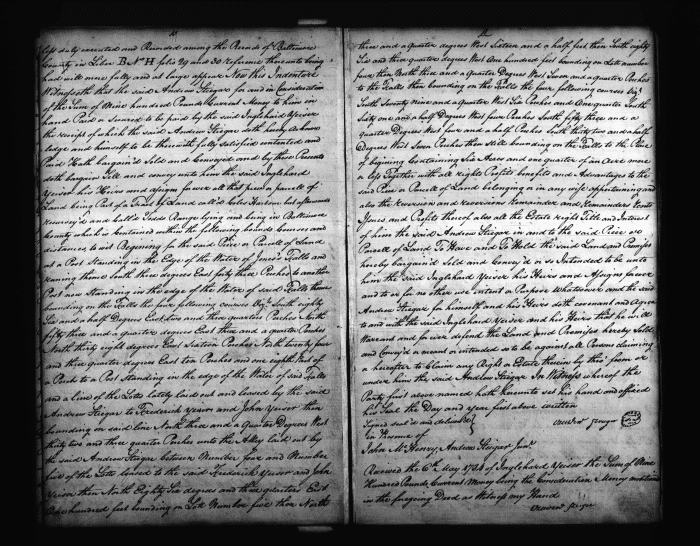 10
last duly executed and Recorded among the Records of Baltimore
County in Liber B N° H folio 29 and 30 Reference thereunto being
had will more fully and at large appear Now this Indenture
Witnesseth that the said Andrew Steiger for and in Consideration
of the Sum of Nine hundred Pounds Current Money to him in
hand Paid or Secured to be paid by the said Inglehard Yeiser
the receipt of which the said Andrew Steiger doth hereby Acknow
ledge and himself to be therewith fully Satisfied contented and
Paid Hath bargain'd Sold and Conveyed and by these Presents
doth bargain Sell and convey unto him the said Inglehard
Yeiser his Heirs and assigns for ever all that piece or parcell of
Land being Part of a Tract of Land call'd Coles Harbour but afterwards
resurvey'd and call'd Todds Range lying and being in Baltimore
County which is Contained within the following bounds Courses and
distances to wit Begining for the said Peice or Parcell of Land
at a Post Standing in the Edge of the Water of Jones's Falls and
runing thence South three degrees East forty three Perches to another
Post now Standing in the edge of the Water of said Falls thence
bounding on the Falls the four following courses Viz. South eighty
Six and a half Degrees East two and three quarters Perches North
fifty three and a quarter degrees East three and a quarter Perches
North thirty eight degrees East Sixteen Perches North twenty four
and three quarter degrees East ten Perches and one eighth Part of
a Perch to a Post Standing in the edge of the Water of said Falls
and a line of the Lots lately laid out and leased by the said
Andrew Steigar to Frederick Yeiser and John Yeiser then
bounding on said line North three and a Quarter Degrees West
thirty two and three quarter Perches unto the Alley laid out by
the said Andrew Steiger between Number four and Number
five of the Lots leased to the said Frederick Yeiser and John
Yeiser then North Eighty Six degrees and three quarters East
One hundred feet bounding on Lott Number five then North
11
three and a quarter degrees West Sixteen and a half feet then South eighty
Six and three quarter degrees West One hundred feet bounding on Lott number
four then North three and a quarter Degrees West Seven and a quarter Perches
to the Falls then bounding on the Falls the four following courses Viz.
South Seventy nine and a quarter West Six Perches and One quarter South
Sixty one and a half Degrees West four Perches South fifty three and a
quarter Degrees West four and a half Perches South thirty two and a half
Degrees West Seven Perches then Still bounding on the Falls to the Place
of begining Containing Six Acres and one quarter of an Acre more
or less Together with all rights Profits benefits and Advantages to the
said Piece or Parcell of Land belonging or in any wise appertaining and
also the reversion and reversions Remainder and Remainders Rents
Issues and Profits thereof also all the Estate right Title and Interest
of him the said Andrew Steigar in and to the said Peice or
Parcell of Land To Have and To Hold the said Land and Premisses
hereby bargain'd Sold and Convey'd or so Intended to be unto
him the said Inglehard Yeiser his Heirs and Assigns forever
and to or for no other use intent or Purpose Whatsoever and the said
Andrew Steigar for himself and his Heirs doth covenant and Agree
to and with the said Inglehard Yeiser and his Heirs that he will
Warrant and for ever defend the Land and Premisses hereby Sold
and Convey'd or meant or intended so to be against all Persons claiming
or hereafter to Claim any Right or Estate therein by this from or
under him the said Andrew Steigar In Witness whereof the
Party first above named hath hereunto set his hand and affixed
his Seal the Day and Year first above written
Signed seal'd and delivered
in Presence of
John McHenry Andrew Steiger Junr.
Received the 6th day 1786 of Inglehard Yeiser the Sum of Nine
Hundred Pounds Current Money being the Consideration Money mentioned
in the foregoing Deed as Witness my Hand